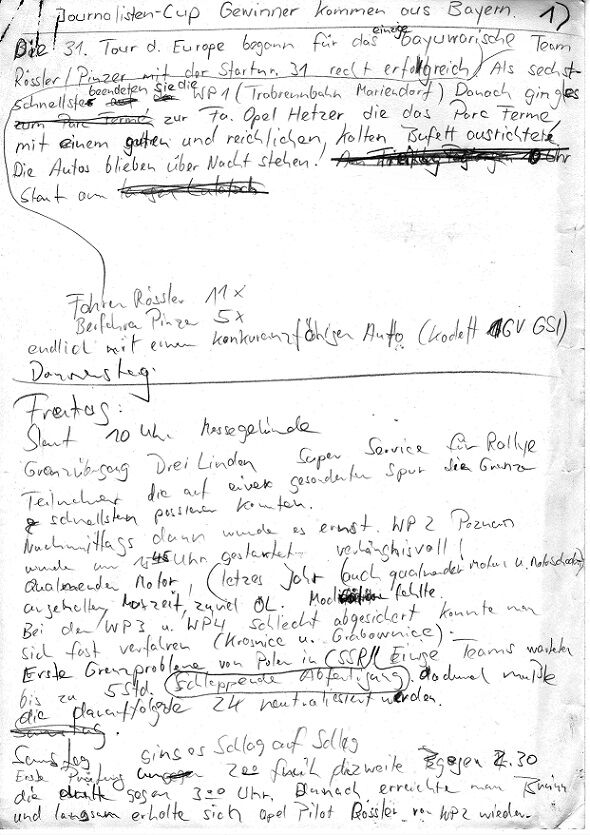 Journalisten-Cup Gewinner kommen aus Bayern. 1)
Die 31. Tour d. Europe begann für das einzige bayuwarische Team
Rössler/Pinzer mit der Startnr. 31 recht erfolgreich. Als sechst-
schnellste beendeten sie die WP1 (Trabrennbahn Mariendorf) Danach ging es
zum Parc Fermé zur Fa. Opel Hetzer die das Parc Ferme
mit einem guten und reichlichen, kalten Bufett ausrichtete.
Die Autos blieben über Nacht stehen! Uhr
Start am
Fahrer Rössler 11x
Beifahrer Pinzer 5x
endlich mit einem konkuranzfähigen Auto (Kadett 16V GSI)
Donnerstag.
Freitag:
Start 10 Uhr Messegelände
Grenzübergang Drei Linden Super Service für Rallye
Teilnehmer die auf einer gesonderten Spur die Grenze
schnellstens passieren konnten.
Nachmittags dann wurde es ernst. WP2 Poznan
wurde um Uhr gestartet verhängnisvoll!
Qualmender Motor! (letzes Jahr auch qualmender Motor u. Motorschaden)
angehalten, zuviel ÖL. fehlte.
Bei den WP3 u. WP4 schlecht abgesichert konnte man
sich fast verfahren (Krosnice u. Grabownice).
Erste Grenzprobleme von Polen in CSSR! Einige Teams warteten
bis zu 5Std. schleppende Abfertigung. dadurch mußte
die darauffolgende ZK neutralisiert werden.
Samstag.
Samstag ging es Schlag auf Schlag
Erste Prüfung 2°° früh die zweite gegen 2.30
die dritte gegen 3°° Uhr. Danach erreichte man Brünn
und langsam erholte sich Opel Pilot Rössler von WP2 wieder.